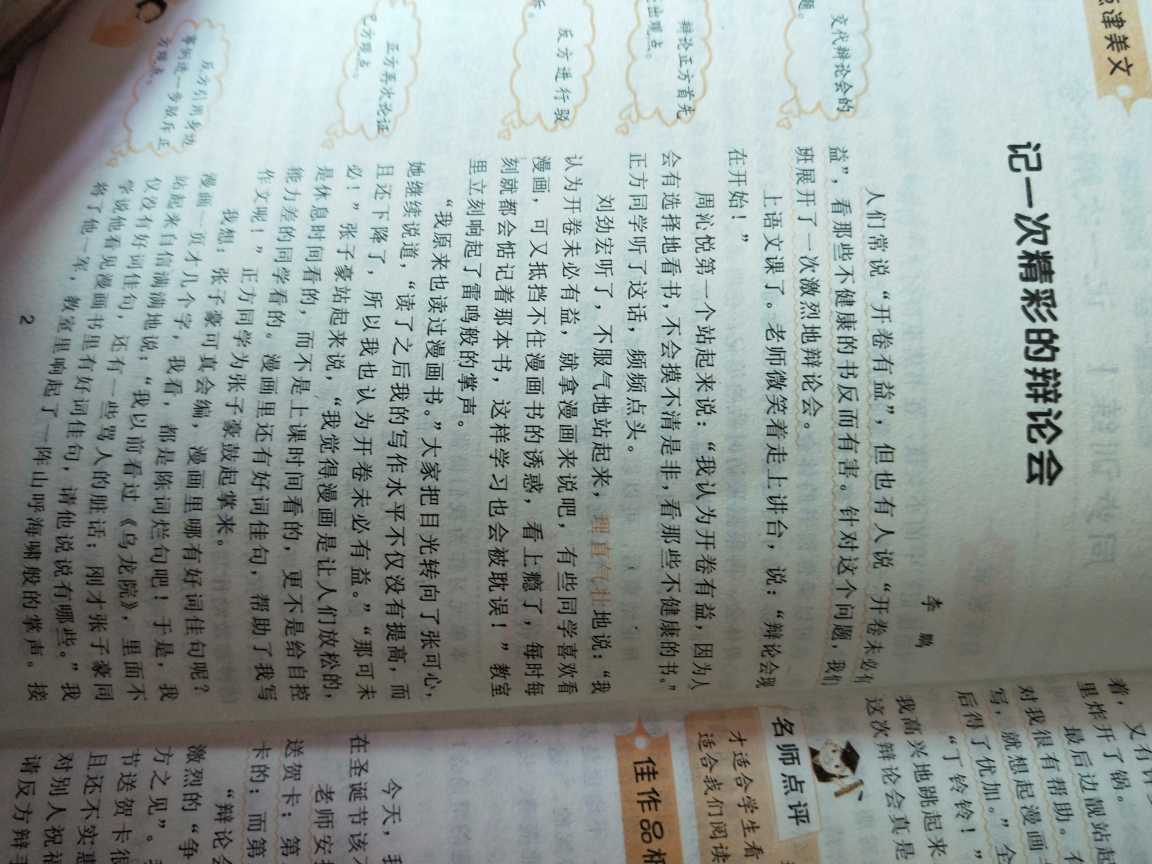 津美文
记一次精彩的辩论会
李鹏
人们常说“开卷有益”，但也有人说“开卷未必有
益”，看那些不健康的书反而有害。针对这个问题，我们
班展开了一次激烈地辩论会。
上语文课了。老师微笑着走上讲台，说：“辩论会现
在开始！”
周沁悦第一个站起来说：“我认为开卷有益，因为人
会有选择地看书，不会摸不清是非，看那些不健康的书。”
正方同学听了这话，频频点头。
刘劲宏听了，不服气地站起来，理直气壮地说：“我
认为开卷未必有益，就拿漫画来说吧，有些同学喜欢看
漫画，可又抵挡不住漫画书的诱惑，看上瘾了，每时每
刻就都会惦记着那本书，这样学习也会被耽误！”教室
里立刻响起了雷鸣般的掌声。
“我原来也读过漫画书。”大家把目光转向了张可心，
她继续说道，“读了之后我的写作水平不仅没有提高，而
且还下降了，所以我也认为开卷未必有益。”“那可未
必！”张子豪站起来说，“我觉得漫画是让人们放松的，
是休息时间看的，而不是上课时间看的，更不是给自控
能力差的同学看的。漫画里还有好词佳句，帮助了我写
作文呢！”正方同学为张子豪鼓起掌来。
我想：张子豪可真会编，漫画里哪有好词佳句呢？
漫画一页才几个字，我看，都是陈词烂句吧！于是，我
站起来自信满满地说：“我以前看过《乌龙院》，里面不
仅没有好词佳句，还有一些骂人的脏话；刚才张子豪同
学说他看见漫画书里有好词佳句，请他说说有哪些。”我
将了他一军，教室里响起了一阵山呼海啸般的掌声。接
2
交代辩论会的
题。
辩论正方首先
出观点。
反方进行驳
斥。
正方再次论证
己方观点。
反方引用身边
事例进一步驳斥正
方观点。
着，又有
里炸开了锅。
最后边靓站起
对我很有帮助。
写，就想起漫画
后得了优加。”全
“丁铃铃！”
我高兴地跳起来
这次辩论会真是
名师点评
才适合学生看
适合我们阅读
佳作品
今天，我
在圣诞节该
老师安
送贺卡；第
卡的；而第
“辩论会
激烈的“争
方之见”。
节送贺卡很
且还不实惠
对别人祝福
请反方辩手